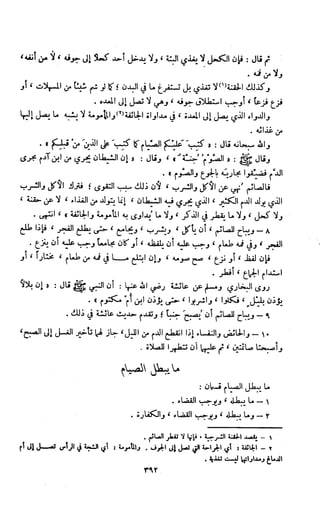 ثم قال : فإن الكحل لا يغذي البتة ، ولا يدخل أحد كحلا إلى جوفه ، لا من أنفه ،
ولا من فمه .
وكذلك الحقنة(١) لا تغذي بل تستفرغ ما في البدن ، كما لو شم شيئا من المسهلات ، أو
فزع فزعا أوجب استطلاق جوفه ، وهي لا تصل إلى المعدة .
والدواء الذي يصل إلى المعدة ، في مداواة الجائفة(٢) والمأمومة ، لا يشبه ما يصل إليها
من غذائه .
والله سبحانه قال : « كتب عليكم الصيام كما كتب على الذين من قبلكم » .
وقال ﷺ : « الصوم جنة » ، وقال : « إن الشيطان يجري من ابن آدم مجرى
الدم فضيقوا مجاريه بالجوع والصوم » .
فالصائم نهي عن الأكل والشرب ، لأن ذلك سبب التقوى ، فترك الأكل والشرب
الذي يولد الدم الكثير ، الذي يجري فيه الشيطان ، إنما يتولد من الغذاء ، لا عن حقنة ،
ولا كحل ، ولا ما يقطر في الذكر ، ولا ما يداوى به المأمومة والجائفة » ، انتهى .
٨ – ويباح للصائم ، أن يأكل ، ويشرب ، ويجامع ، حتى يطلع الفجر ، فإذا طلع
الفجر ، وفي فمه طعام ، وجب عليه أن يلفظه ، أو كان مجامعا وجب عليه أن ينزع .
فإن لفظ ، أو نزع ، صح صومه ، وإن ابتلع ما في فمه من طعام ، مختارا ، أو
استدام الجماع ، أفطر .
روى البخاري ومسلم عن عائشة رضي الله عنها : أن النبي ﷺ قال : « إن بلالا
يؤذن بليل ، فكلوا ، واشربوا ، حتى يؤذن ابن أم مكتوم » .
٩ – ويباح للصائم أن يصبح جنبا ، وتقدم حديث عائشة في ذلك .
١٠ – والحائض والنفساء إذا انقطع الدم من الليل ، جاز لهما تأخير الغسل إلى الصبح ،
وأصبحتا صائمتين ، ثم عليهما أن تتطهرا للصلاة .
ما يبطل الصيام
ما يبطل الصيام قسمان :
١ – ما يبطله ، ويوجب القضاء .
٢ – وما يبطله ، ويوجب القضاء ، والكفارة .
١ – يقصد الحقنة الشرجية ، فإنها لا تفطر الصائم .
٢ – الجائفة : أي الجراحة التي تصل إلى الجوف . والمأمومة : أي الشجة في الرأس تصل إلى أم
الدماغ ومداواتها ليست تغذية .
٣٩٢